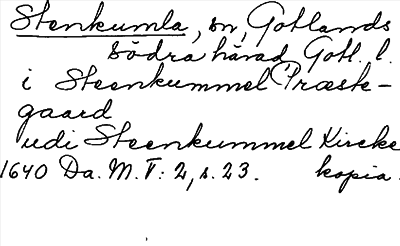 Stenkumla, sn, Gotlands
södra härad, Gotl. l.
i Steenkummel Præste-
gaard
udi Steenkummel Kircke
1640 Da. M. T: 2, s. 23. kopia.